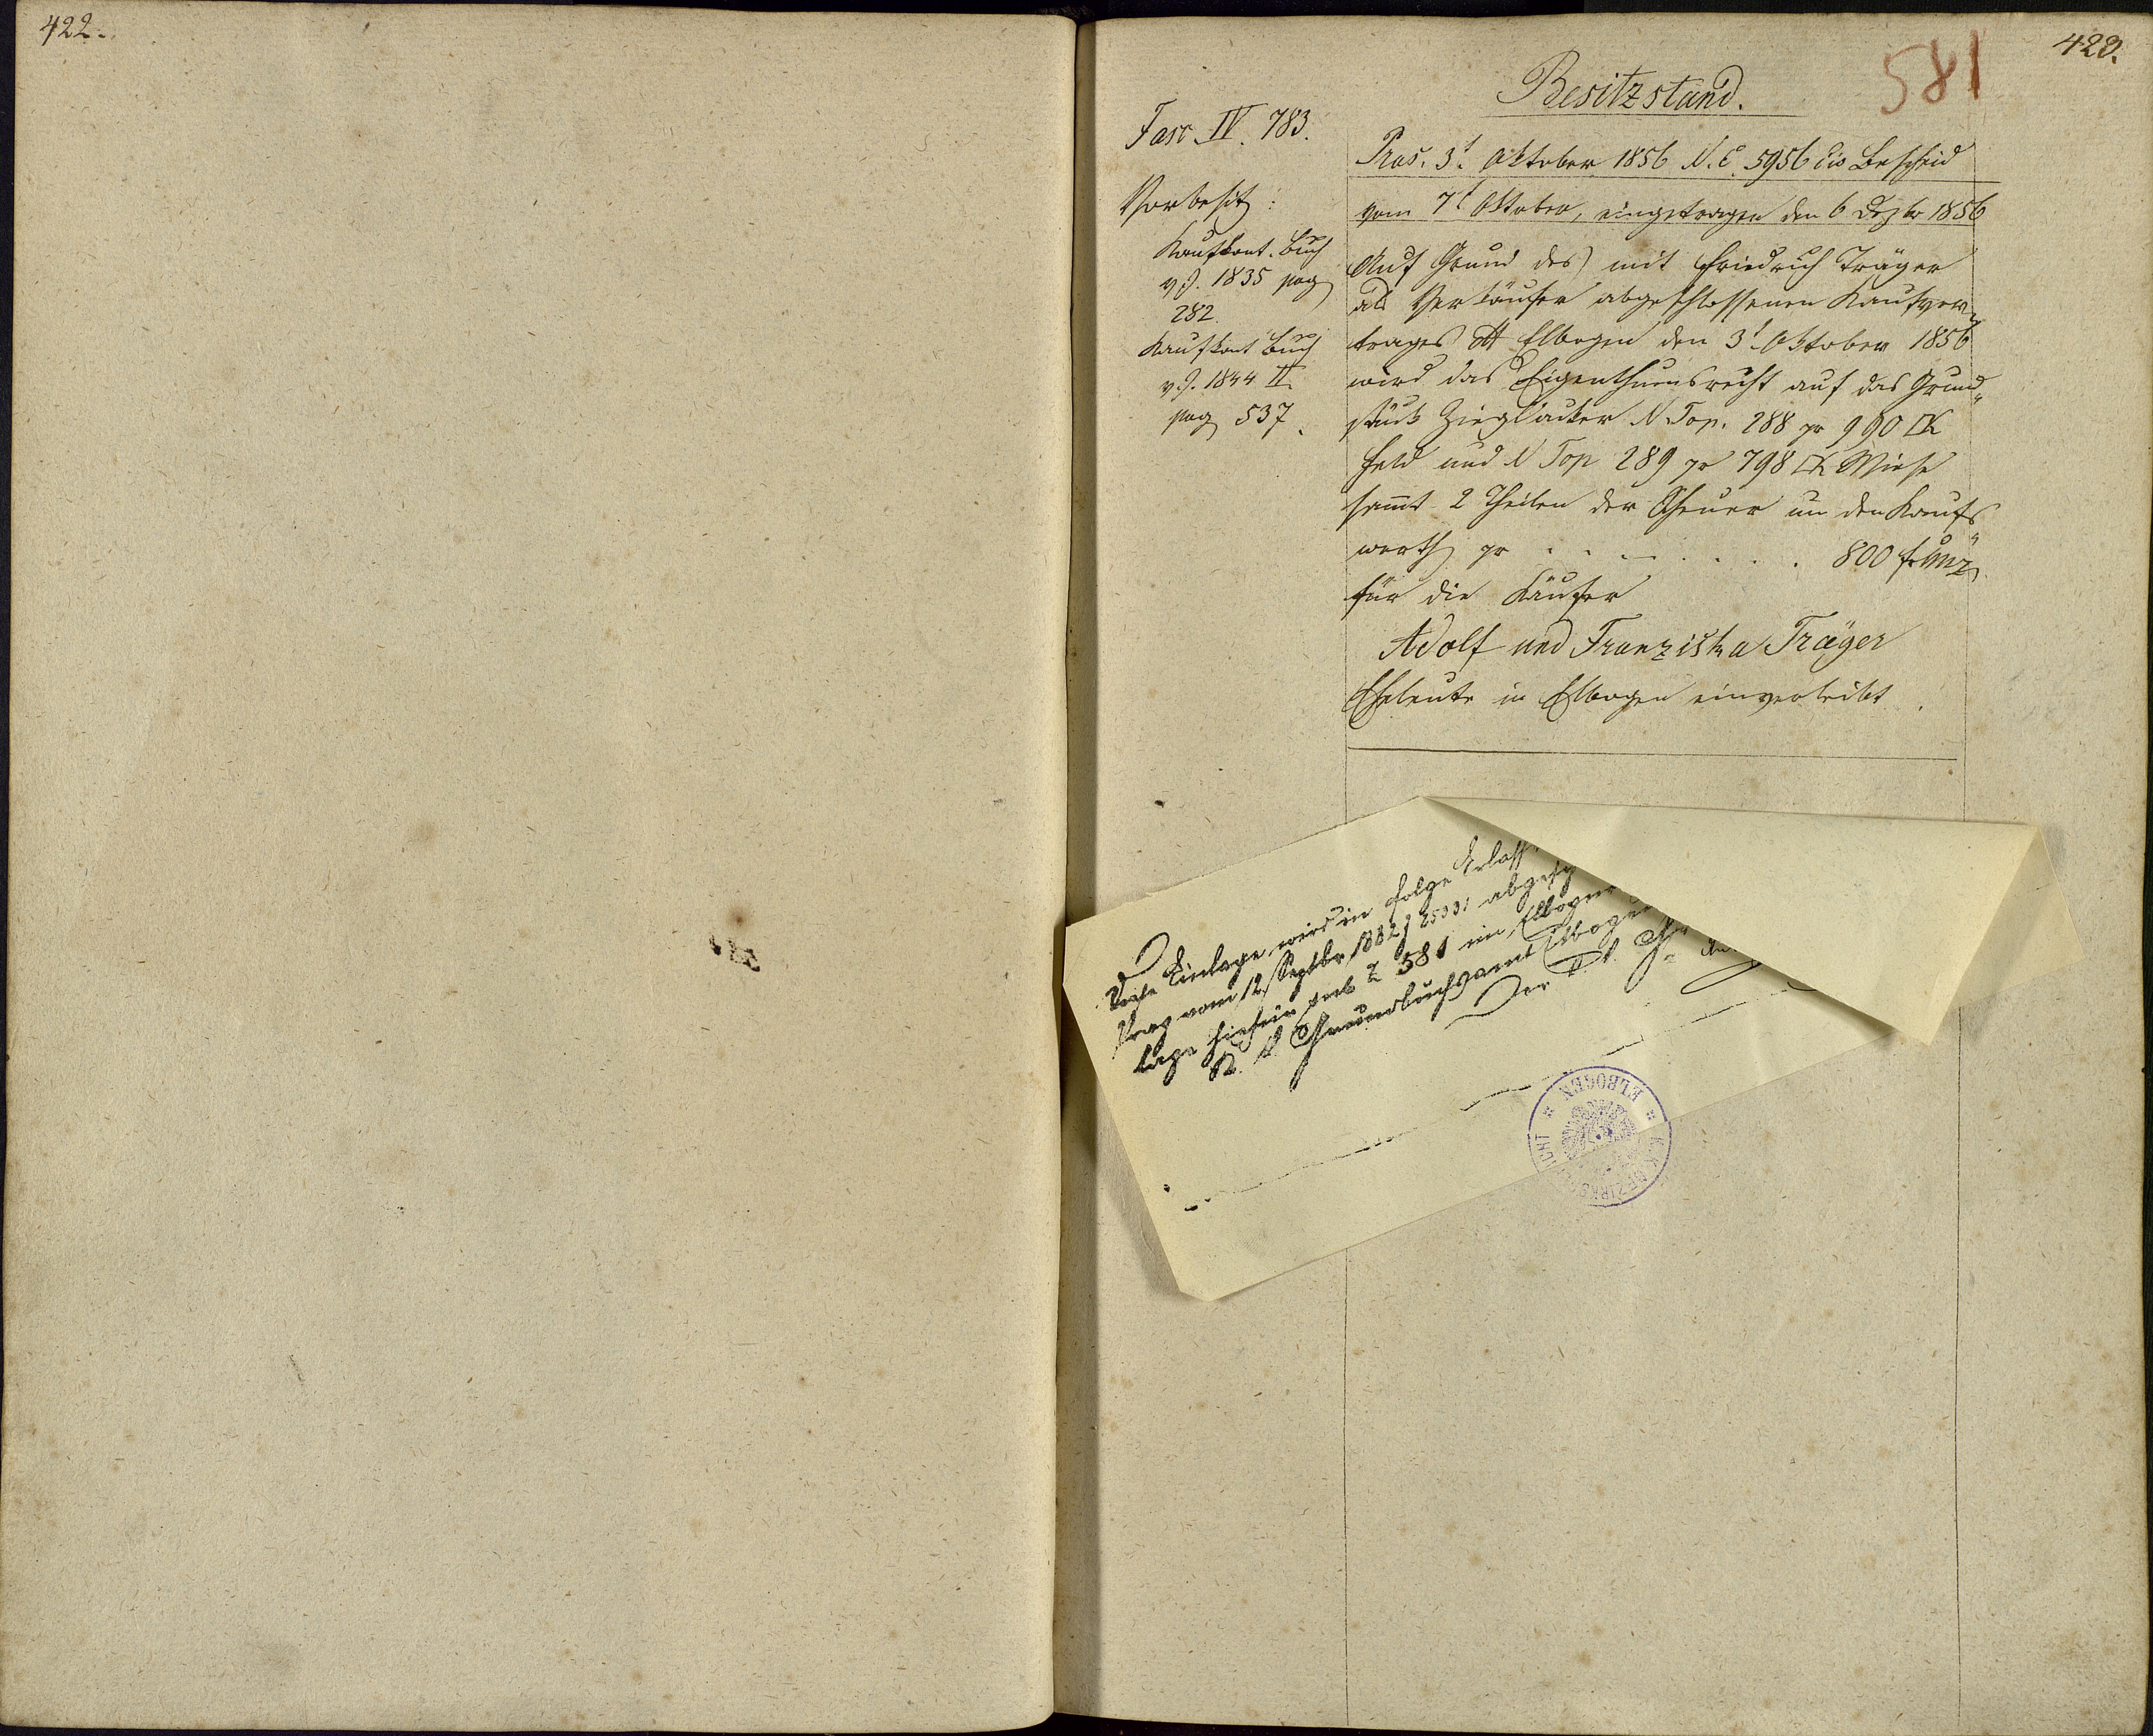 422.
423.
581
Besitzstand.
Fasc IV. 783.
Vorbesitz:
Kaufkont. Buch
v J. 1835 pag
282.
Kaufkont Buch
v J. 1844 II
pag 537.
Präs. 3t. Oktober 1856 N. E. 5956 Bescheid
vom 7t Oktober, eingetragen den 6 Dezbr 1856
Auf Grund des mit Friedrich Träger
als Verkäufer abgeschlossenen Kaufver„
trages Elbogen den 3t Oktober 1856
wird das Eigenthumsrecht auf das Grund„
stück Ziegläcker N Top. 288 pr 990 □K
Feld und N Top 289 pr 798 □K Wiese
sammt 2 Theilen der Scheuer um den Kaufs„
werth pr . . . . . . . 800 f Mz
für die Käufer
Adolf und Franziska Träger
Eheleute in Elbogen einverleibt.
Diese Einlage wird in Folge Erlass
Prag vom 12 Septbr 1882 Z 25331 abgesch
lage Z 581 im Elbogner
K. k. Grundbuchsamt Elbogen
Der k. k.
K. K. BEZIRKSGERICHT
* ELBOGEN *